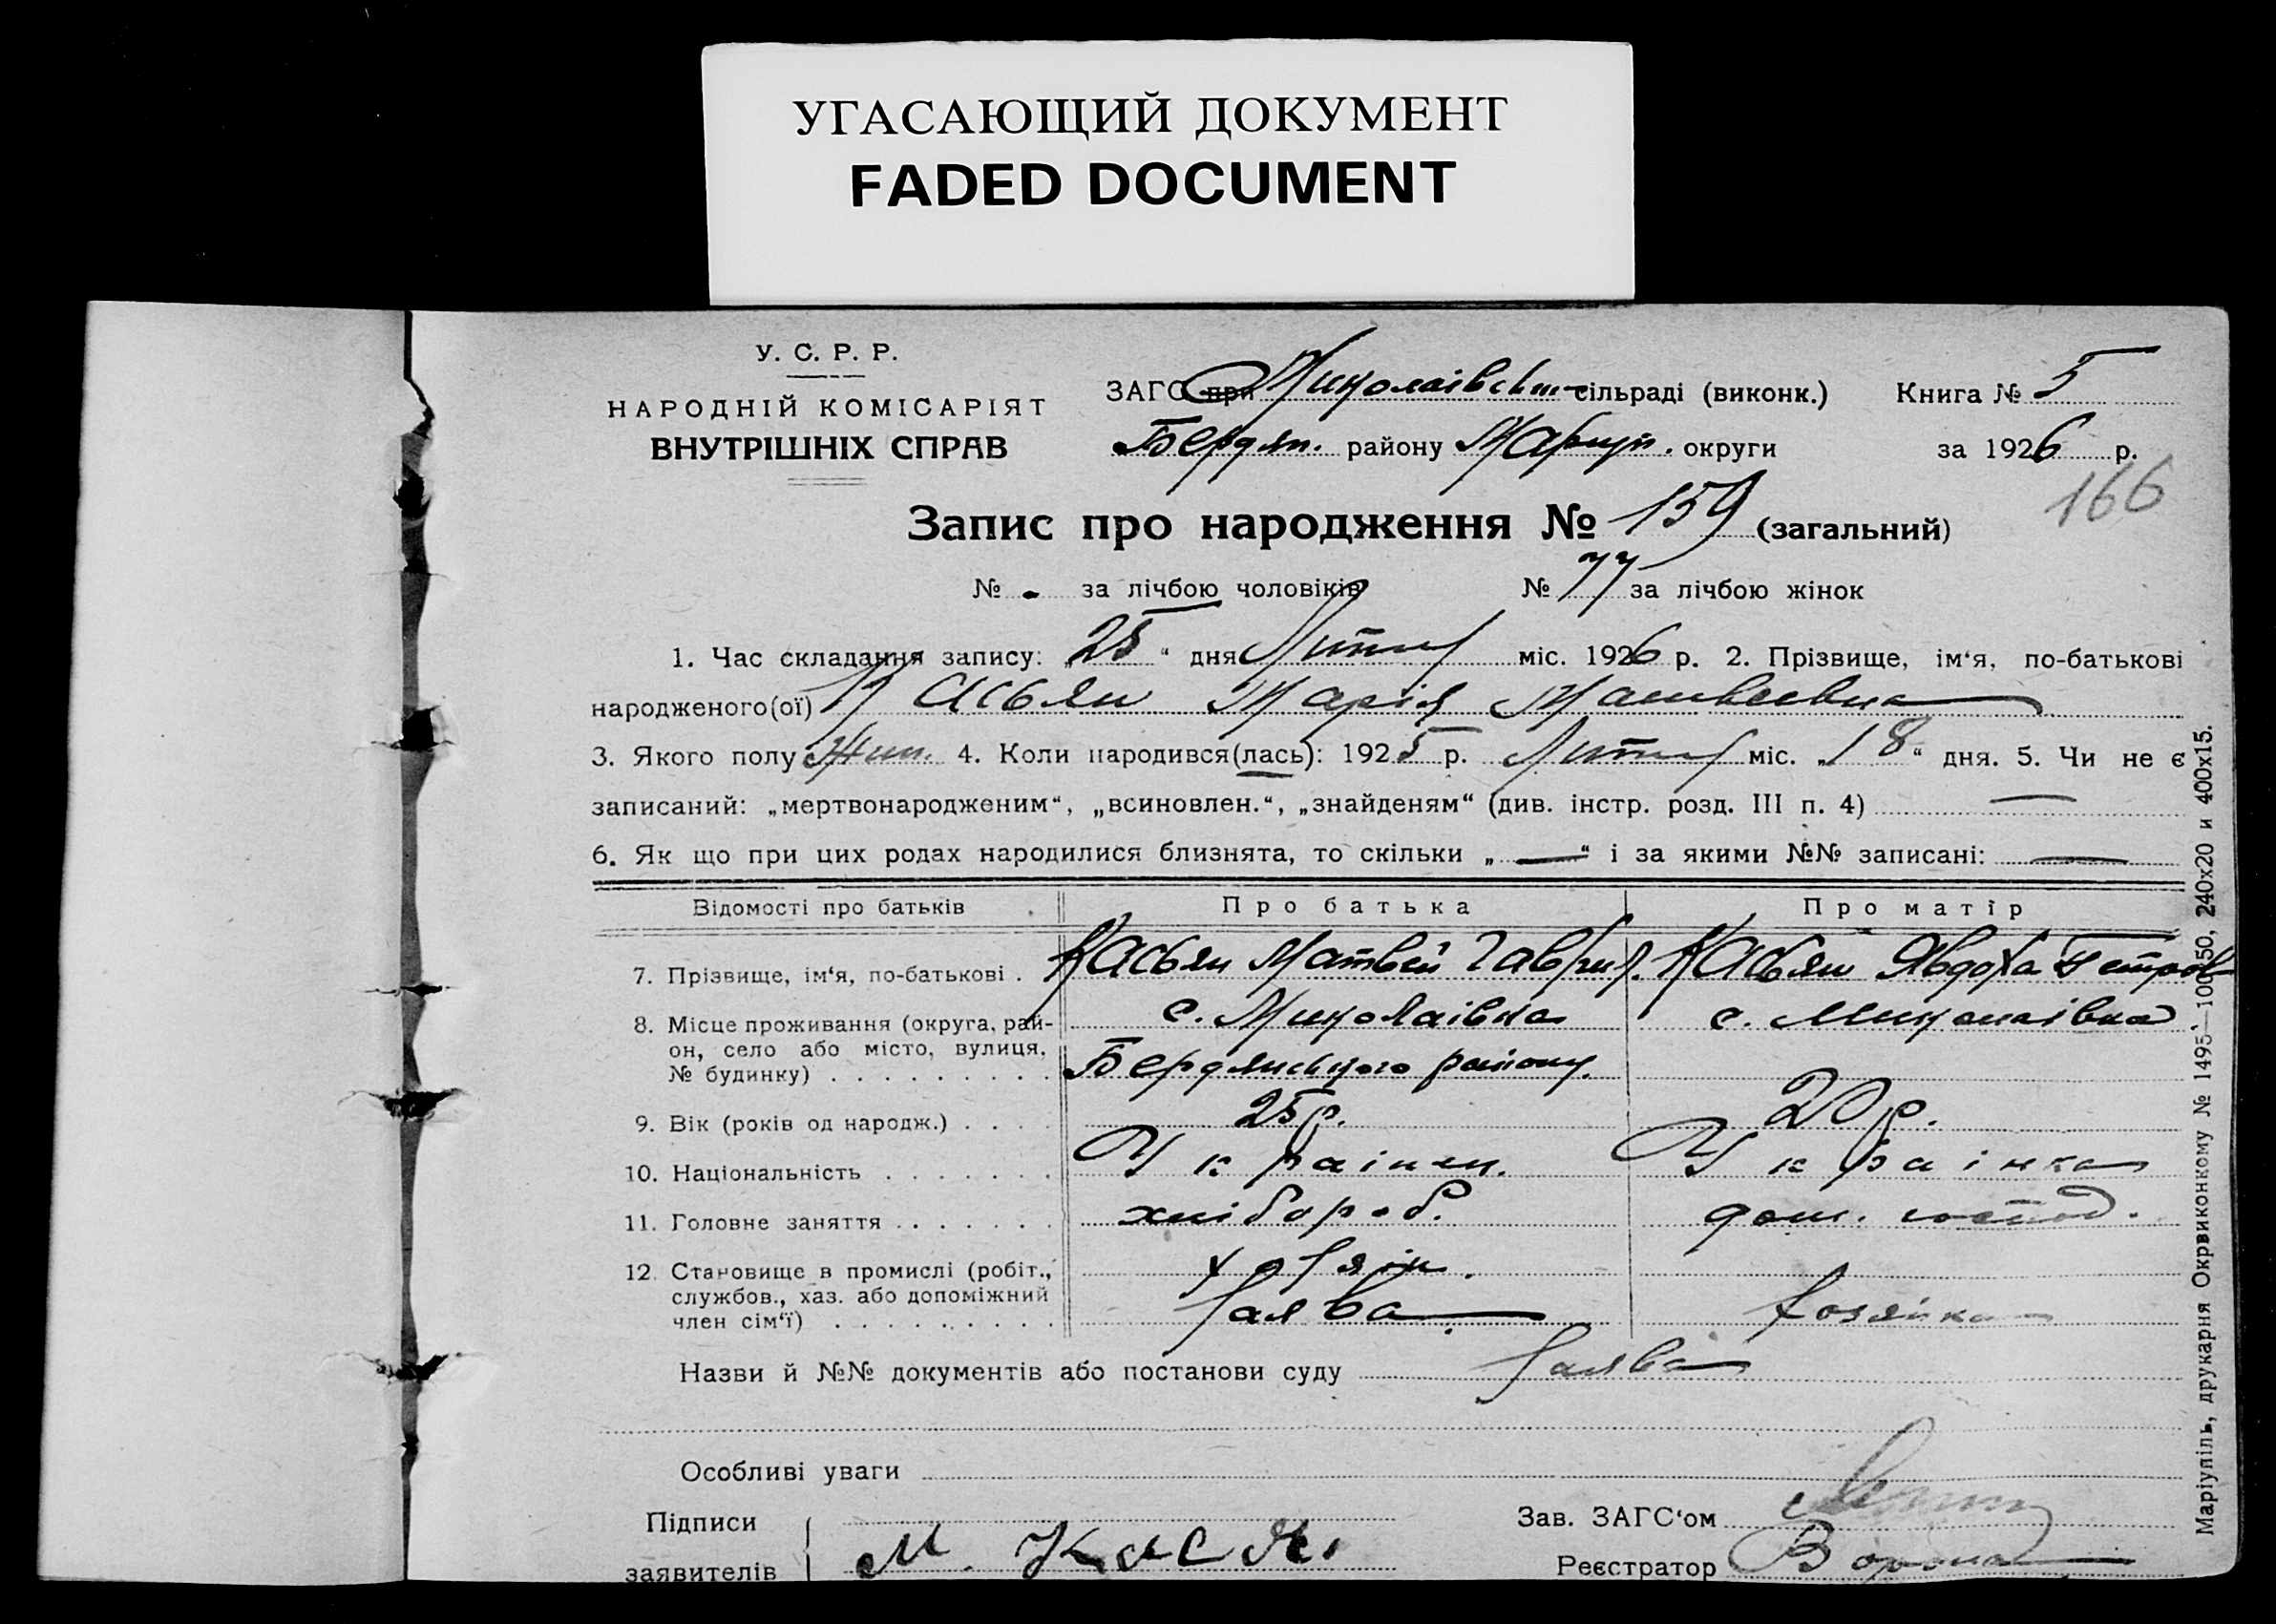 УГАСАЮЩИЙ ДОКУМЕНТ
FADED DOCUMENT
У. С. Р. Р.
НАРОДНІЙ КОМІСАРІЯТ
ВНУТРІШНІХ СПРАВ
ЗАГС при Миколаівськ. сільраді (виконк.) Книга № 5
Бердян. району Маріуп. округи за 1926 р.
166
Запис про народження № 159 (загальний)
№ - за лічбою чоловіків № 77 за лічбою жінок
1. Час складання запису: „25“ дня Лютий міс. 1926 р. 2. Прізвище, ім‘я, по-батькові
народженого(ої) Касьян Марія Матвеевна
3. Якого полу Жін. 4. Коли народився(лась): 1925 р. Лютий міс. „18“ дня. 5. Чи не є
записаний: „мертвонародженим“, „всиновлен.“, „знайденям“ (див. інстр. розд. III п. 4) —
6. Як що при цих родах народилися близнята, то скільки „—“ і за якими №№ записані: —
Відомості про батьків Про батька Про матір
7. Прізвище, ім‘я, по-батькові . Касьян Матвей Гаврил. Касьян Явдоха Петров
8. Місце проживання (округа, рай- с. Миколаівка с. Миколаівка
он, село або місто, вулиця,
№ будинку) . . . . . . . . . Бердянського району.
9. Вік (років од народж.) . . . . 25 р. 20 р.
10. Національність . . . . . . . Украінец. Украінка
11. Головне заняття . . . . . . . хлібороб. дом. господ.
12. Становище в промислі (робіт., хозяін.
службов., хаз. або допоміжний Заява хозяйка
член сім‘ї) . . . . . . . . .
Назви й №№ документів або постанови суду Заява
Особливі уваги
Підписи Зав. ЗАГС‘ом
заявителів М. Касян Реєстратор Ворона
Маріупіль, друкарня Окрвиконкому № 1495—100х50, 240х20 и 400х15.